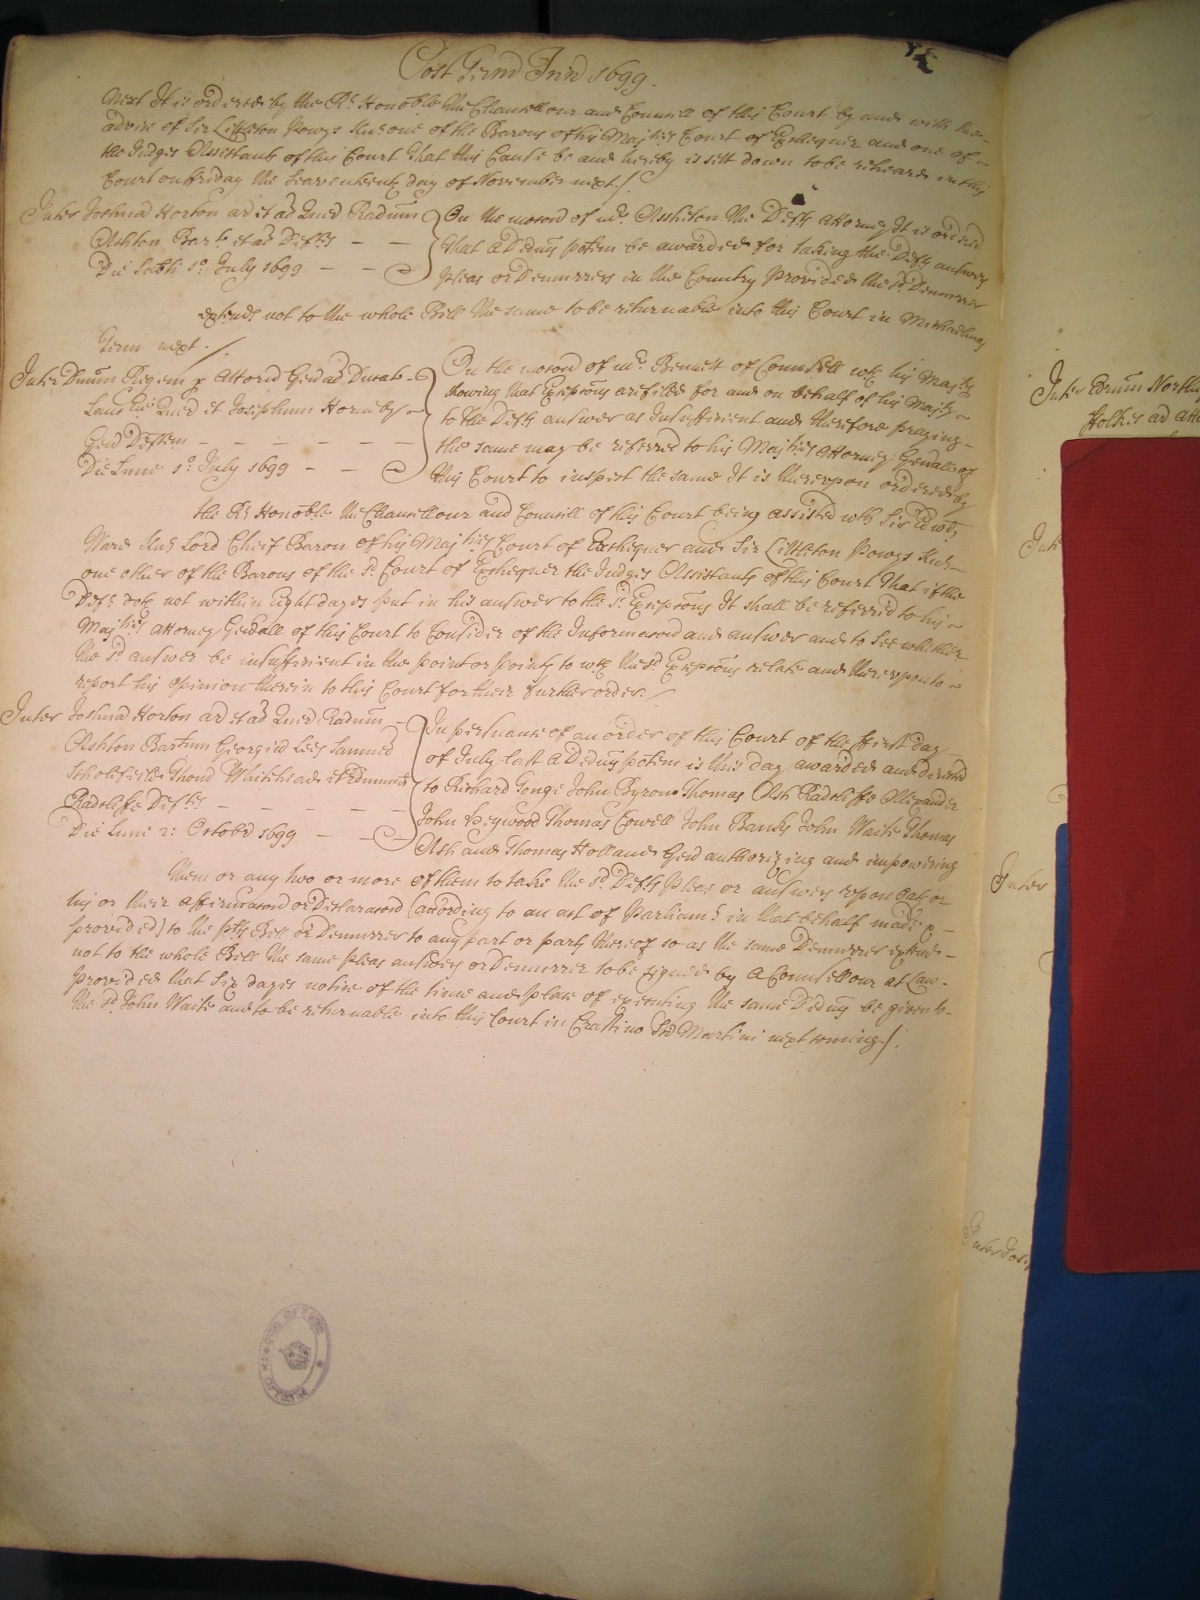 Post Term Trin 1699.
Next It is ordered by the Rt. Honoble the Chancellour and Councill of this Court by and with the
advice of Sir Littleton Powys Knt one of the Barons of his Majties Court of Exchequer and one of
the Judges Assistants of this Court That this Cause be and hereby is sett down to be reheard in this
Court on Friday the Seaventeenth day of November next /.
Inter Joshuā Horton ar et ał Quer Radūm
Ashton Bart. et ał Defts
Die Sabti 1o. July 1699
On the motōn of mr. Assheton the Defts Attorney It is ordered
that a Dedim̄s potēm be awarded for taking the Defts answers
pleas or Demurrers in the Country Provided the sd. Demurrer
extends not to the whole Bill the same to be returnable into this Court in Michaelmas
Term next ./.
Inter Dnūm Regem p Attorn̄ Genāl Ducat
Lanc Quer et Josephum Hornby
Gen̄ Deftem
Die Lune 1o. July 1699
On the motōn of mr. Bennett of Councell wth his Majty
showing that Excepcōns are filed for and on behalf of his Majty
to the Defts answer as Insufficient and therefore praying
the same may be referred to his Majties Attorney Genāll of
this Court to inspect the same It is thereupon ordered by
the Rt Honoble the Chancellour and Councill of this Court being assisted wth Sir Edwd.
Ward Knt Lord Cheif Baron of his Majties Court of Exchequer and Sir Littleton Powys Knt
one other of the Barons of the sd. Court of Exchequer the Judges Assistants of this Court That if the
Deft doth not within Eight dayes put in his answer to the sd. Excepcōns It shall be referred to his
Majties Attorney Genāll of this Court to Consider of the Informacōn and answer and to see whether
the sd answer be insufficient in the point or points to wch the sd. Excepcōns relate and thereupon to
report his opinion therein to this Court for their further order. /
Inter Joshuā Horton ar et ał Quer Radūm
Ashton Bartūm Georgiū Lees Samuel
Scholefield Thom̄ Whitehead et Edmund
Radcliffe Defts
Die Lune 2: Octobr̄ 1699
In persuance of an order of this Court of the ffirst day
of July last A Dedim̄s potēm is this day awarded and directed
to Richard Gonge John Byrom Thomas Ash Radcliffe Alexander
John Heywood Thomas Cowell John Banks John Waite Thomas
Ash and Thomas Holland Gen̄ authorizing and impowering
them or any two or more of them to take the sd. Defts Pleas or answers upon Oath or
his or their affirmacōn or Declaracōn (according to an act of Parliamt. in that behalf made &
provided) to the plts Bill or Demurrer to any part or parts thereof so as the same Demurrer extend
not to the whole Bill the same pleas answers or Demurrer to be signed by a Counsellour at Law
Provided that six dayes notice of the time and place of executing the same Dedim̄s be given to
the sd. John Waite and to be returnable into this Court in Crastino Sti Martini next coming /.
Inter Edmūm
Inter
Inter